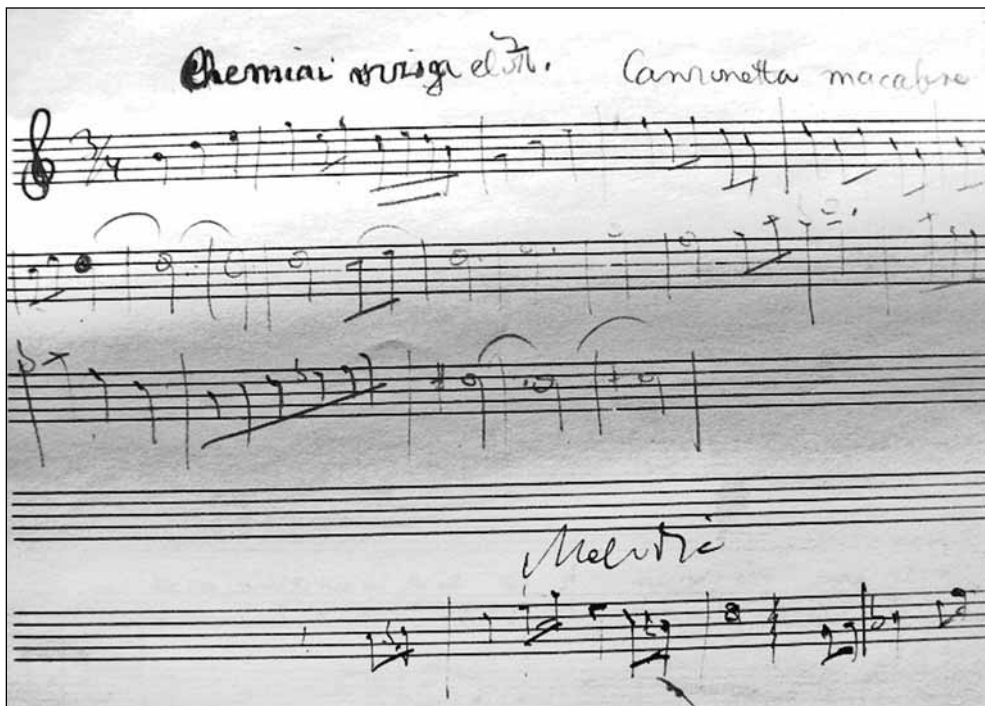 Chemiai vizsga előtt. Canzonetta macabre
3/4